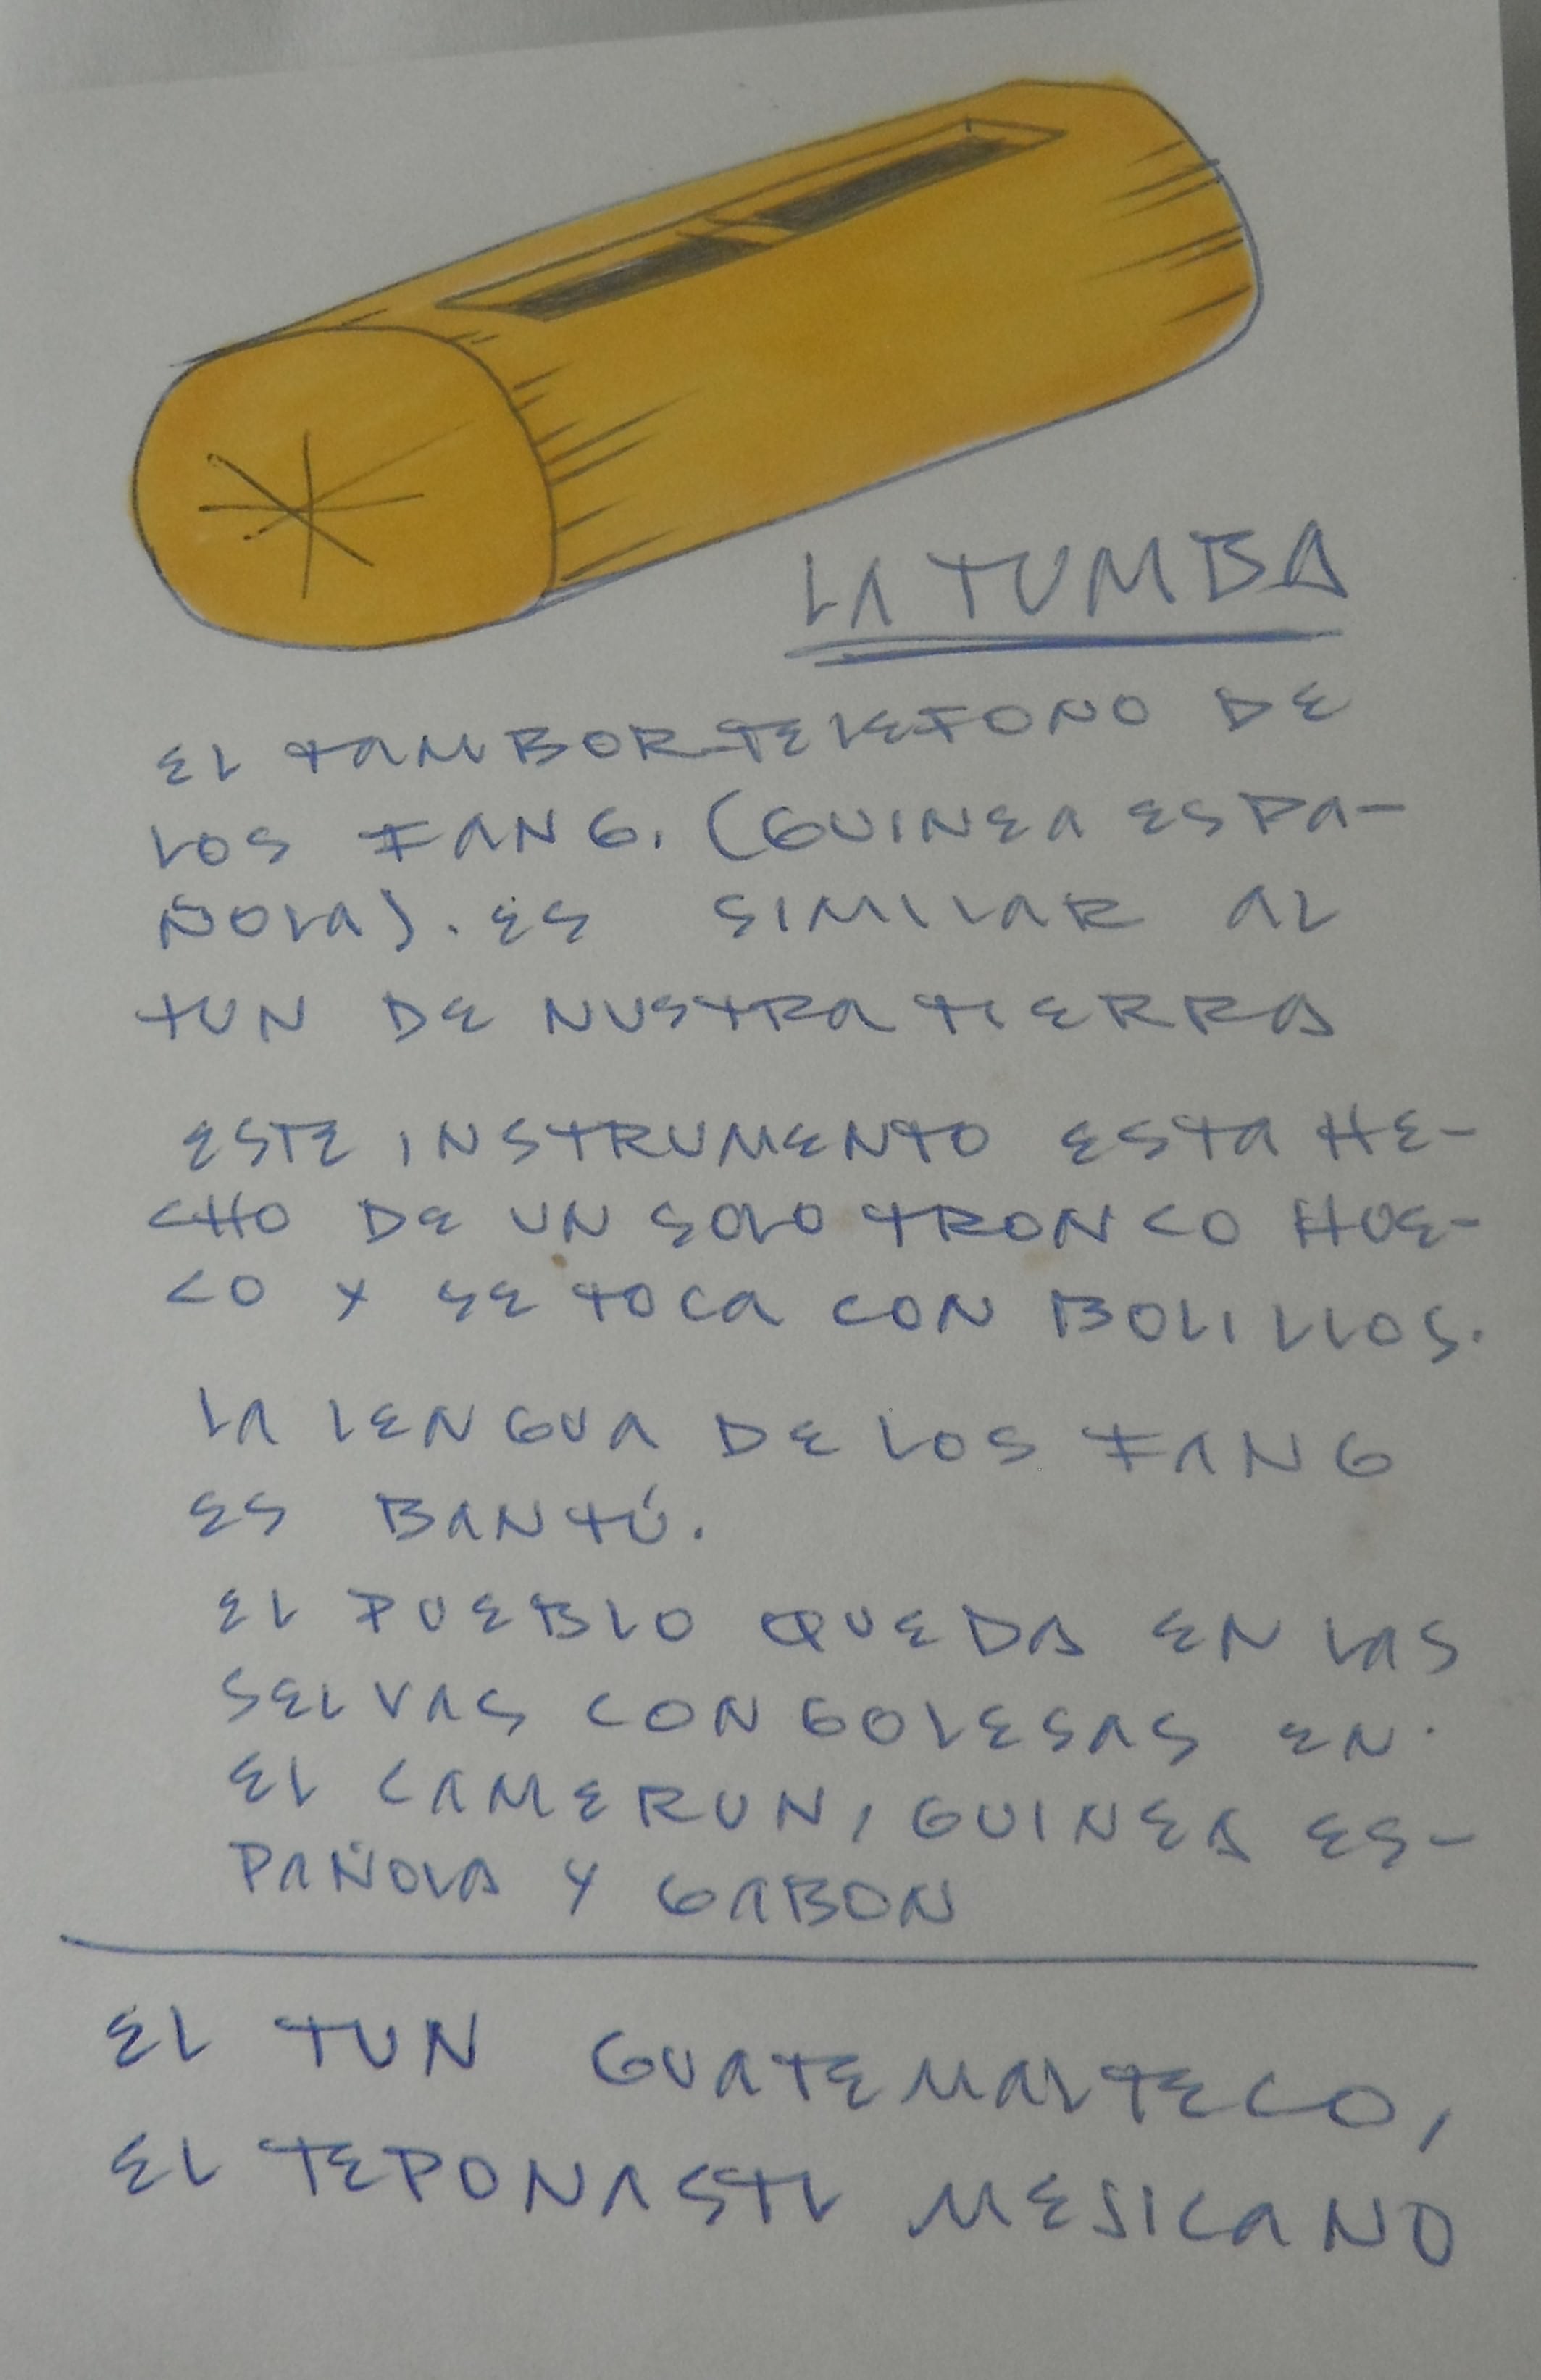 LA TUMBA
EL TAMBOR TELEFONO DE
LOS FANG. (GUINEA ESPA-
ÑOLA). ES SIMILAR AL
TUN DE NUSTRA TIERRA
ESTE INSTRUMENTO ESTA HE-
CHO DE UN SOLO TRONCO HUE-
CO Y SE TOCA CON BOLILLOS.
LA LENGUA DE LOS FANG
ES BANTÚ.
EL PUEBLO QUEDA EN LAS
SELVAS CONGOLESAS EN
EL CAMERUN, GUINEA ES-
PAÑOLA Y GABON
EL TUN GUATEMALTECO,
EL TEPONASTL MESICANO